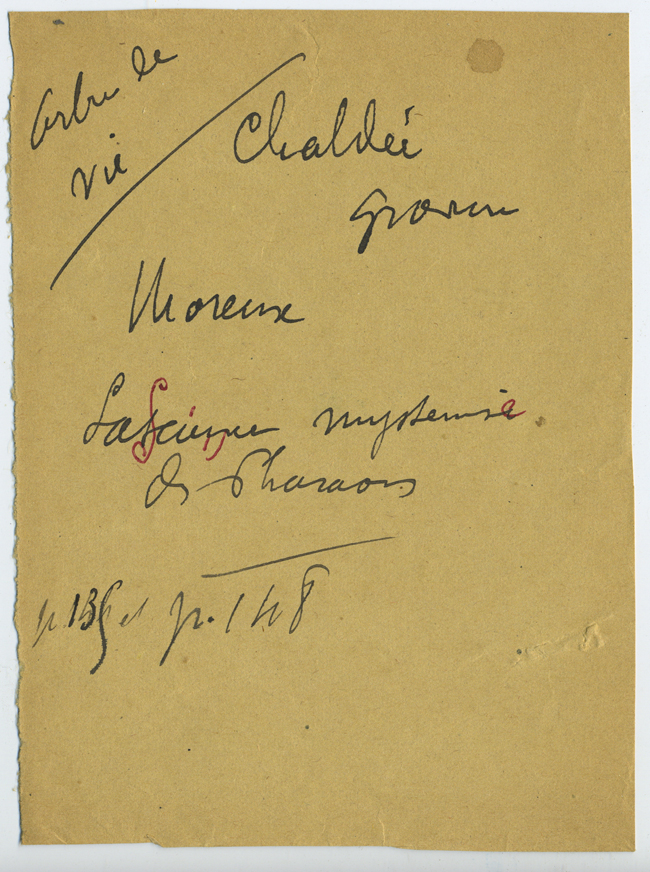 Arbre de
vie
Chaldée
Moreux
La Science mysterieuse
des Pharaons
p. 139 et p. 148